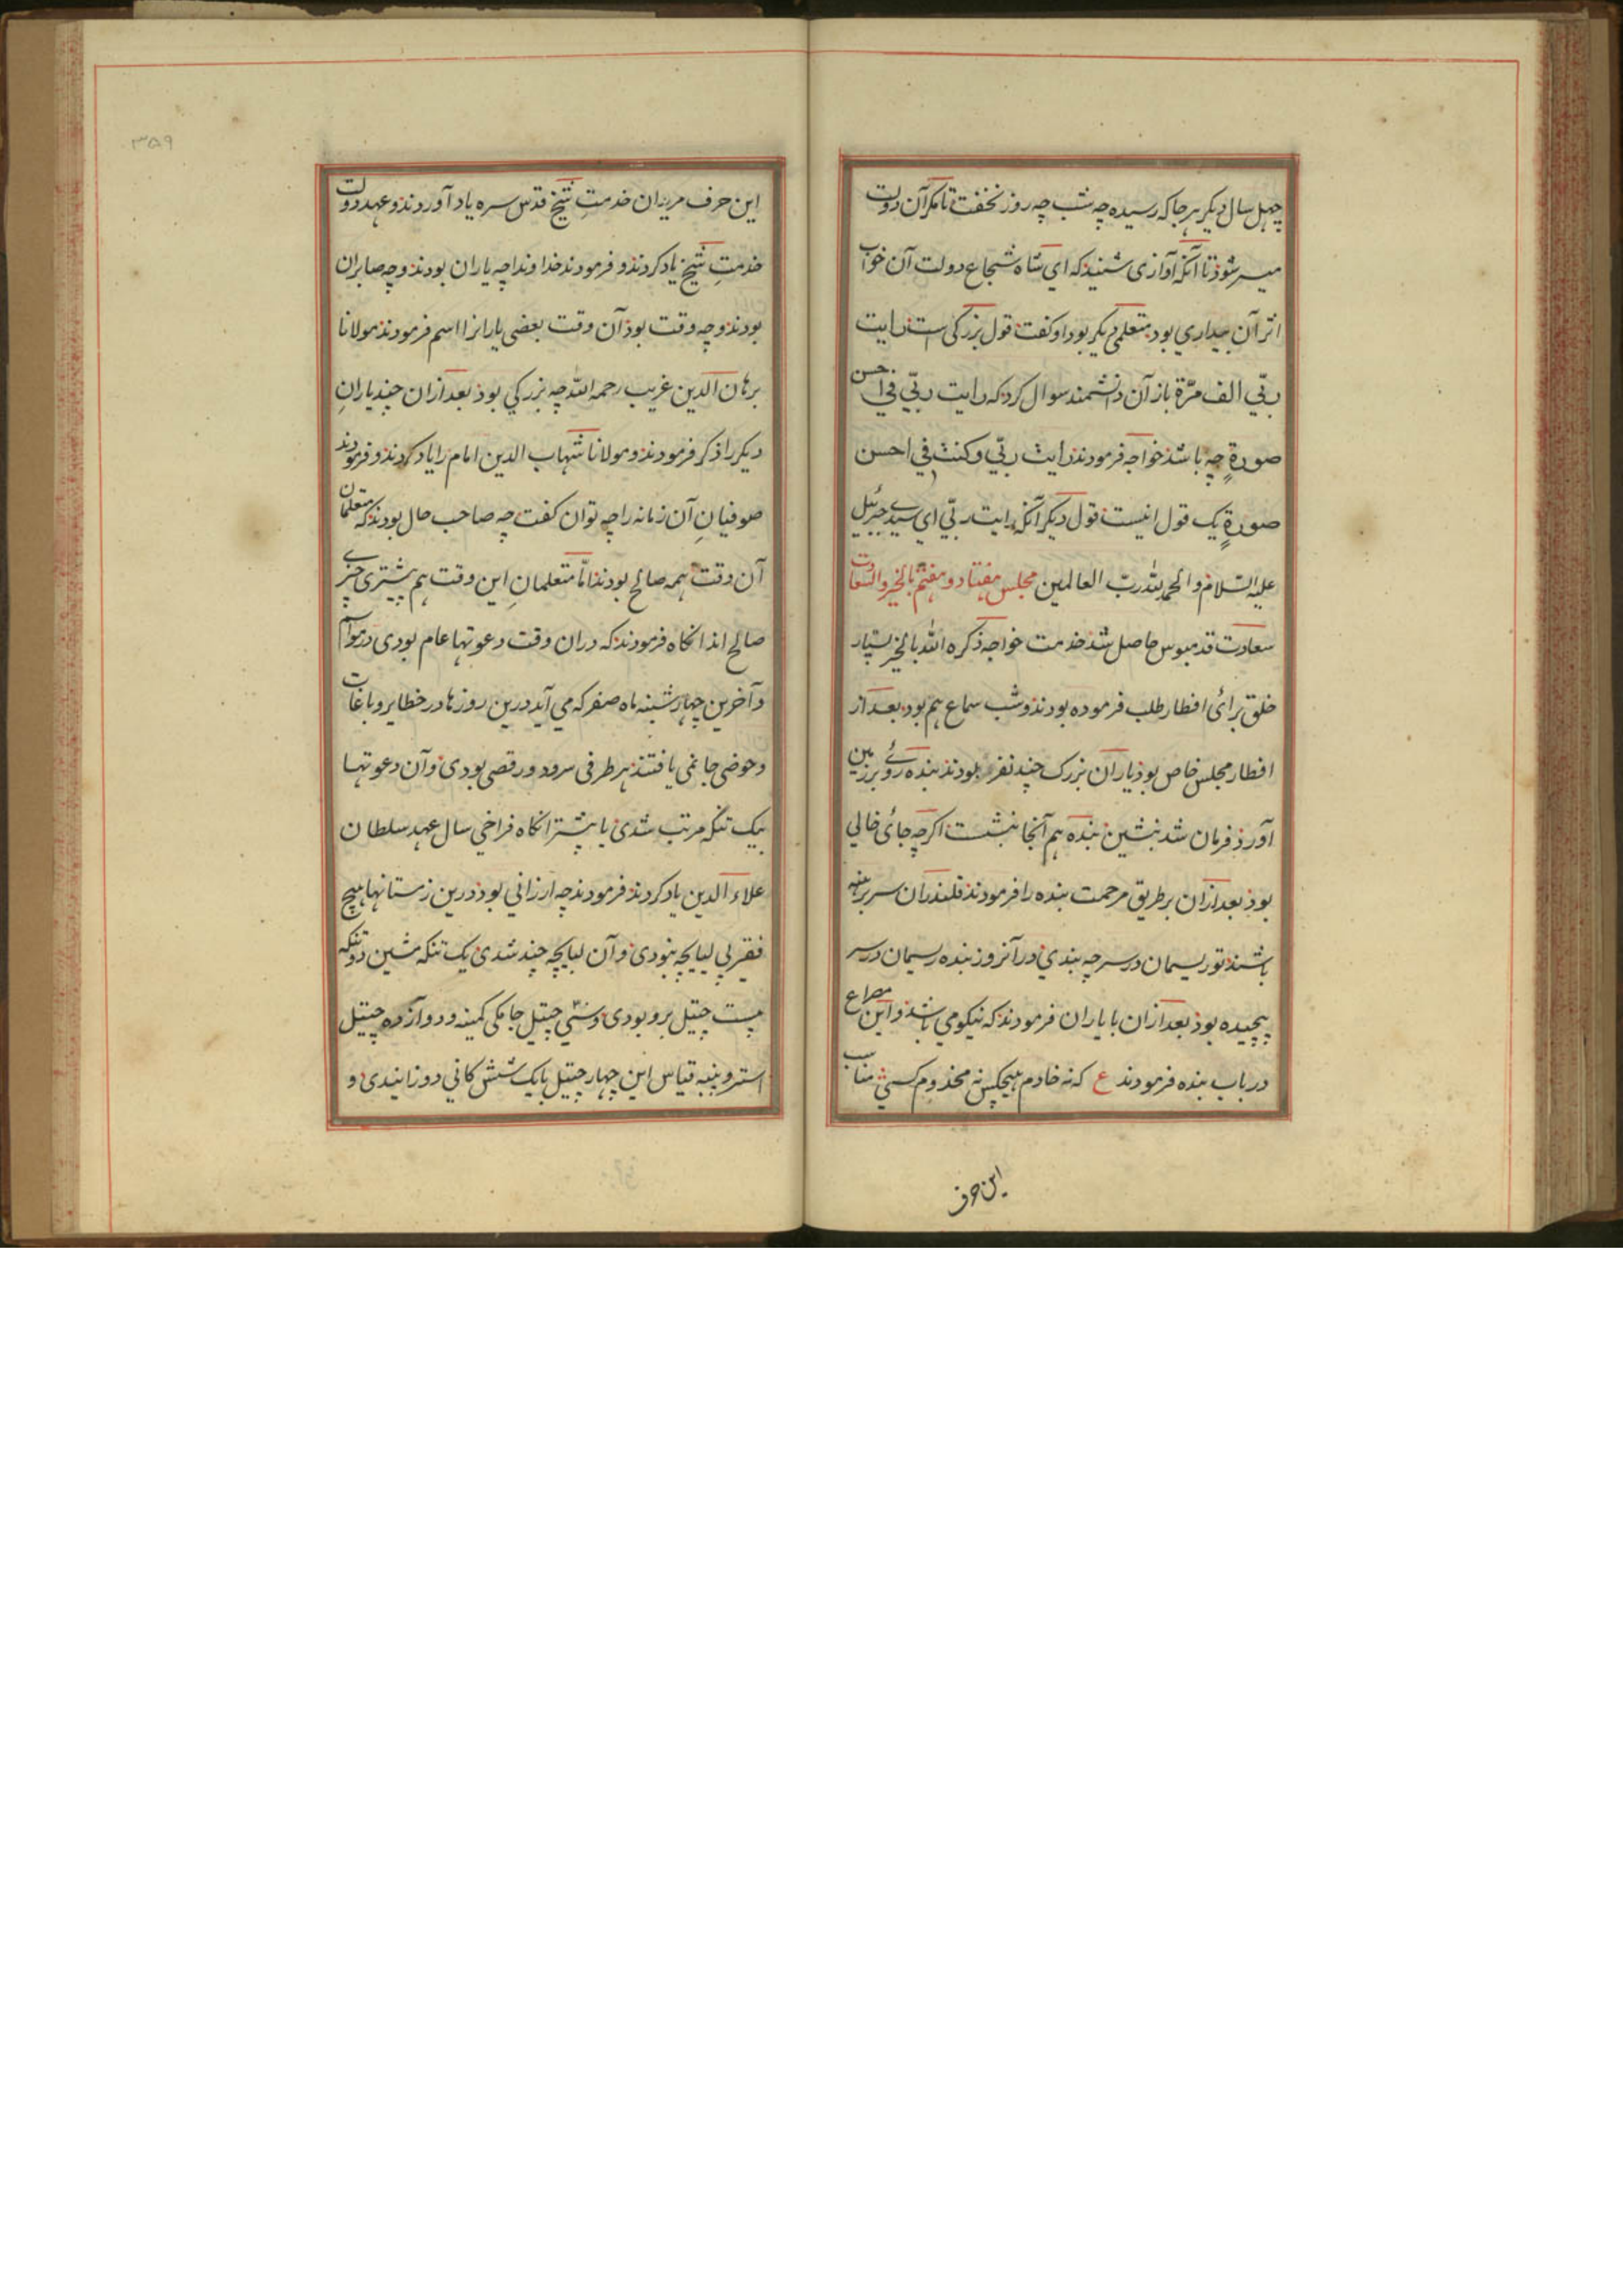 چهل سال دیگر هر جا که رسیده چه شب چه روز نخفت تا مگر آن دولت
میسر شود تا آنکه آوازی شنید که ای شاه شجاع دولت آن خواب
اثر آن بیداری بود متعلمی دیگر بود او گفت قول بزرگی است رایت
ربّي الف مرّة باز آن دانشمند سوال کرد که رایت ربّي في احسن
صورةٍ چه باشد خواجه فرمودند رایت ربّي وکنت في احسن
صورةٍ یک قول اینست قول دیگر آنکه رایت ربّي ای سیدي جبرئیل
علیه السّلام والحمد لله ربّ العالمین مجلس هفتاد و هفتم بالخیر والسّعادت
سعادت قدمبوس حاصل شد خدمت خواجه ذکره الله بالخیر بسیار
خلق برائ افطار طلب فرموده بودند و شب سماع هم بود بعد از
افطار مجلس خاص بود یاران بزرگ چند نفر بودند بنده روے بر زمین
آورد فرمان شد بنشین بنده هم آنجا بنشست اگرچه جائ خالی
بود بعد ازان بر طریق مرحمت بنده را فرمودند قلندران سر برهنه
باشند تو ریسمان در سر چه بندي در آنروز بنده ریسمان در سر
پیچیده بود بعد ازان با یاران فرمودند که نیکو می باشد و این مصراع
در باب بنده فرمودند ع که نه خادم هیچکس نه مخدوم کسی مناسب
این حرف
۳۵۹
این حرف مریدان خدمتِ شیخ قدس سره یاد آوردند و عهد دولت
خدمتِ شیخ یاد کردند و فرمودند خداوندا چه یاران بودند و چه صابران
بودند و چه وقت بود آن وقت بعضی یارانرا اسم فرمودند مولانا
برهان الدین غریب رحمه الله چه بزرگي بود بعد ازان چند یارانِ
دیگر را ذکر فرمودند و مولانا شهاب الدین امام را یاد کردند و فرمودند
صوفیانِ آن زمانه را چه توان گفت چه صاحب حال بودند که متعلمان
آن وقت همه صالح بودند امّا متعلمانِ این وقت هم پیشتری چیزے
صالح اند انگاه فرمودند که دران وقت دعوتها عام بودی در موآسم
و آخرین چهارشنبه ماه صفر که می آید درین روزها در خطایر و باغات
و حوضی جا نمی یافتند هر طرفی سرود و رقصی بودی و آن دعوتها
بیک تنگه مرتب شدی یا بیشتر انگاه فراخي سال عهد سلطان
علاء الدین یاد کردند فرمودند چه ارزانی بود درین زستانها هیچ
فقیر بی لباچه نبودی و آن لباچه چند شدی یک تنگه شین دو تنگه
بیست چتیل برو بودی و سی چتیل جامگی کمینه و دوازده چتیل
استر و پنبه قیاس این چهار چتیل یا یک شش کانی دوزانیدی و